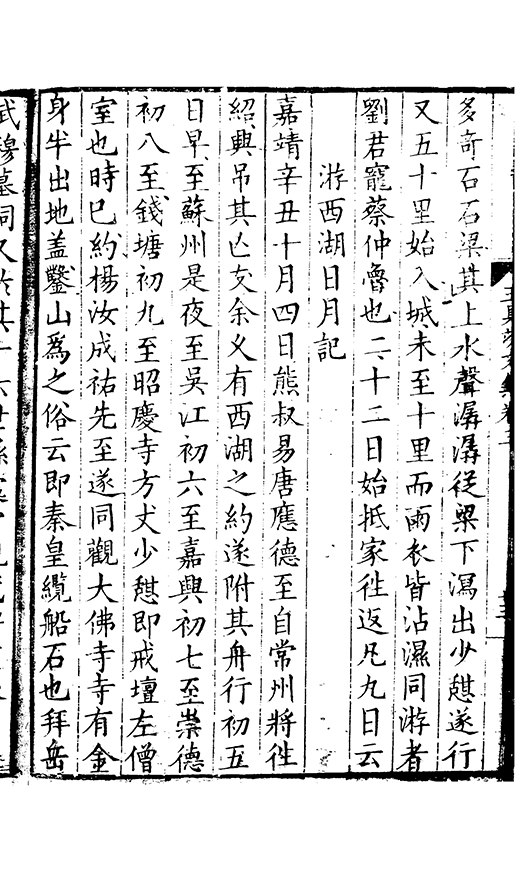 多奇石石梁其上水聲潺潺従梁下瀉出少憇遂行
又五十里始入城未至十里而雨衣皆沾濕同游者
劉君寵蔡仲魯也二十二日始抵家徃返凡九日云
游西湖日月記
嘉靖辛丑十月四日熊叔易唐應德至自常州將徃
紹興吊其亡友余乂有西湖之約遂附其舟行初五
日早至蘇州是夜至吳江初六至嘉興初七至崇德
初八至錢塘初九至昭慶寺方丈少憇即戒壇左僧
室也時巳約楊汝成祐先至遂同觀大佛寺寺有金
身半出地盖鑿山爲之俗云即秦皇纜船石也拜岳
武穆墓祠又於其